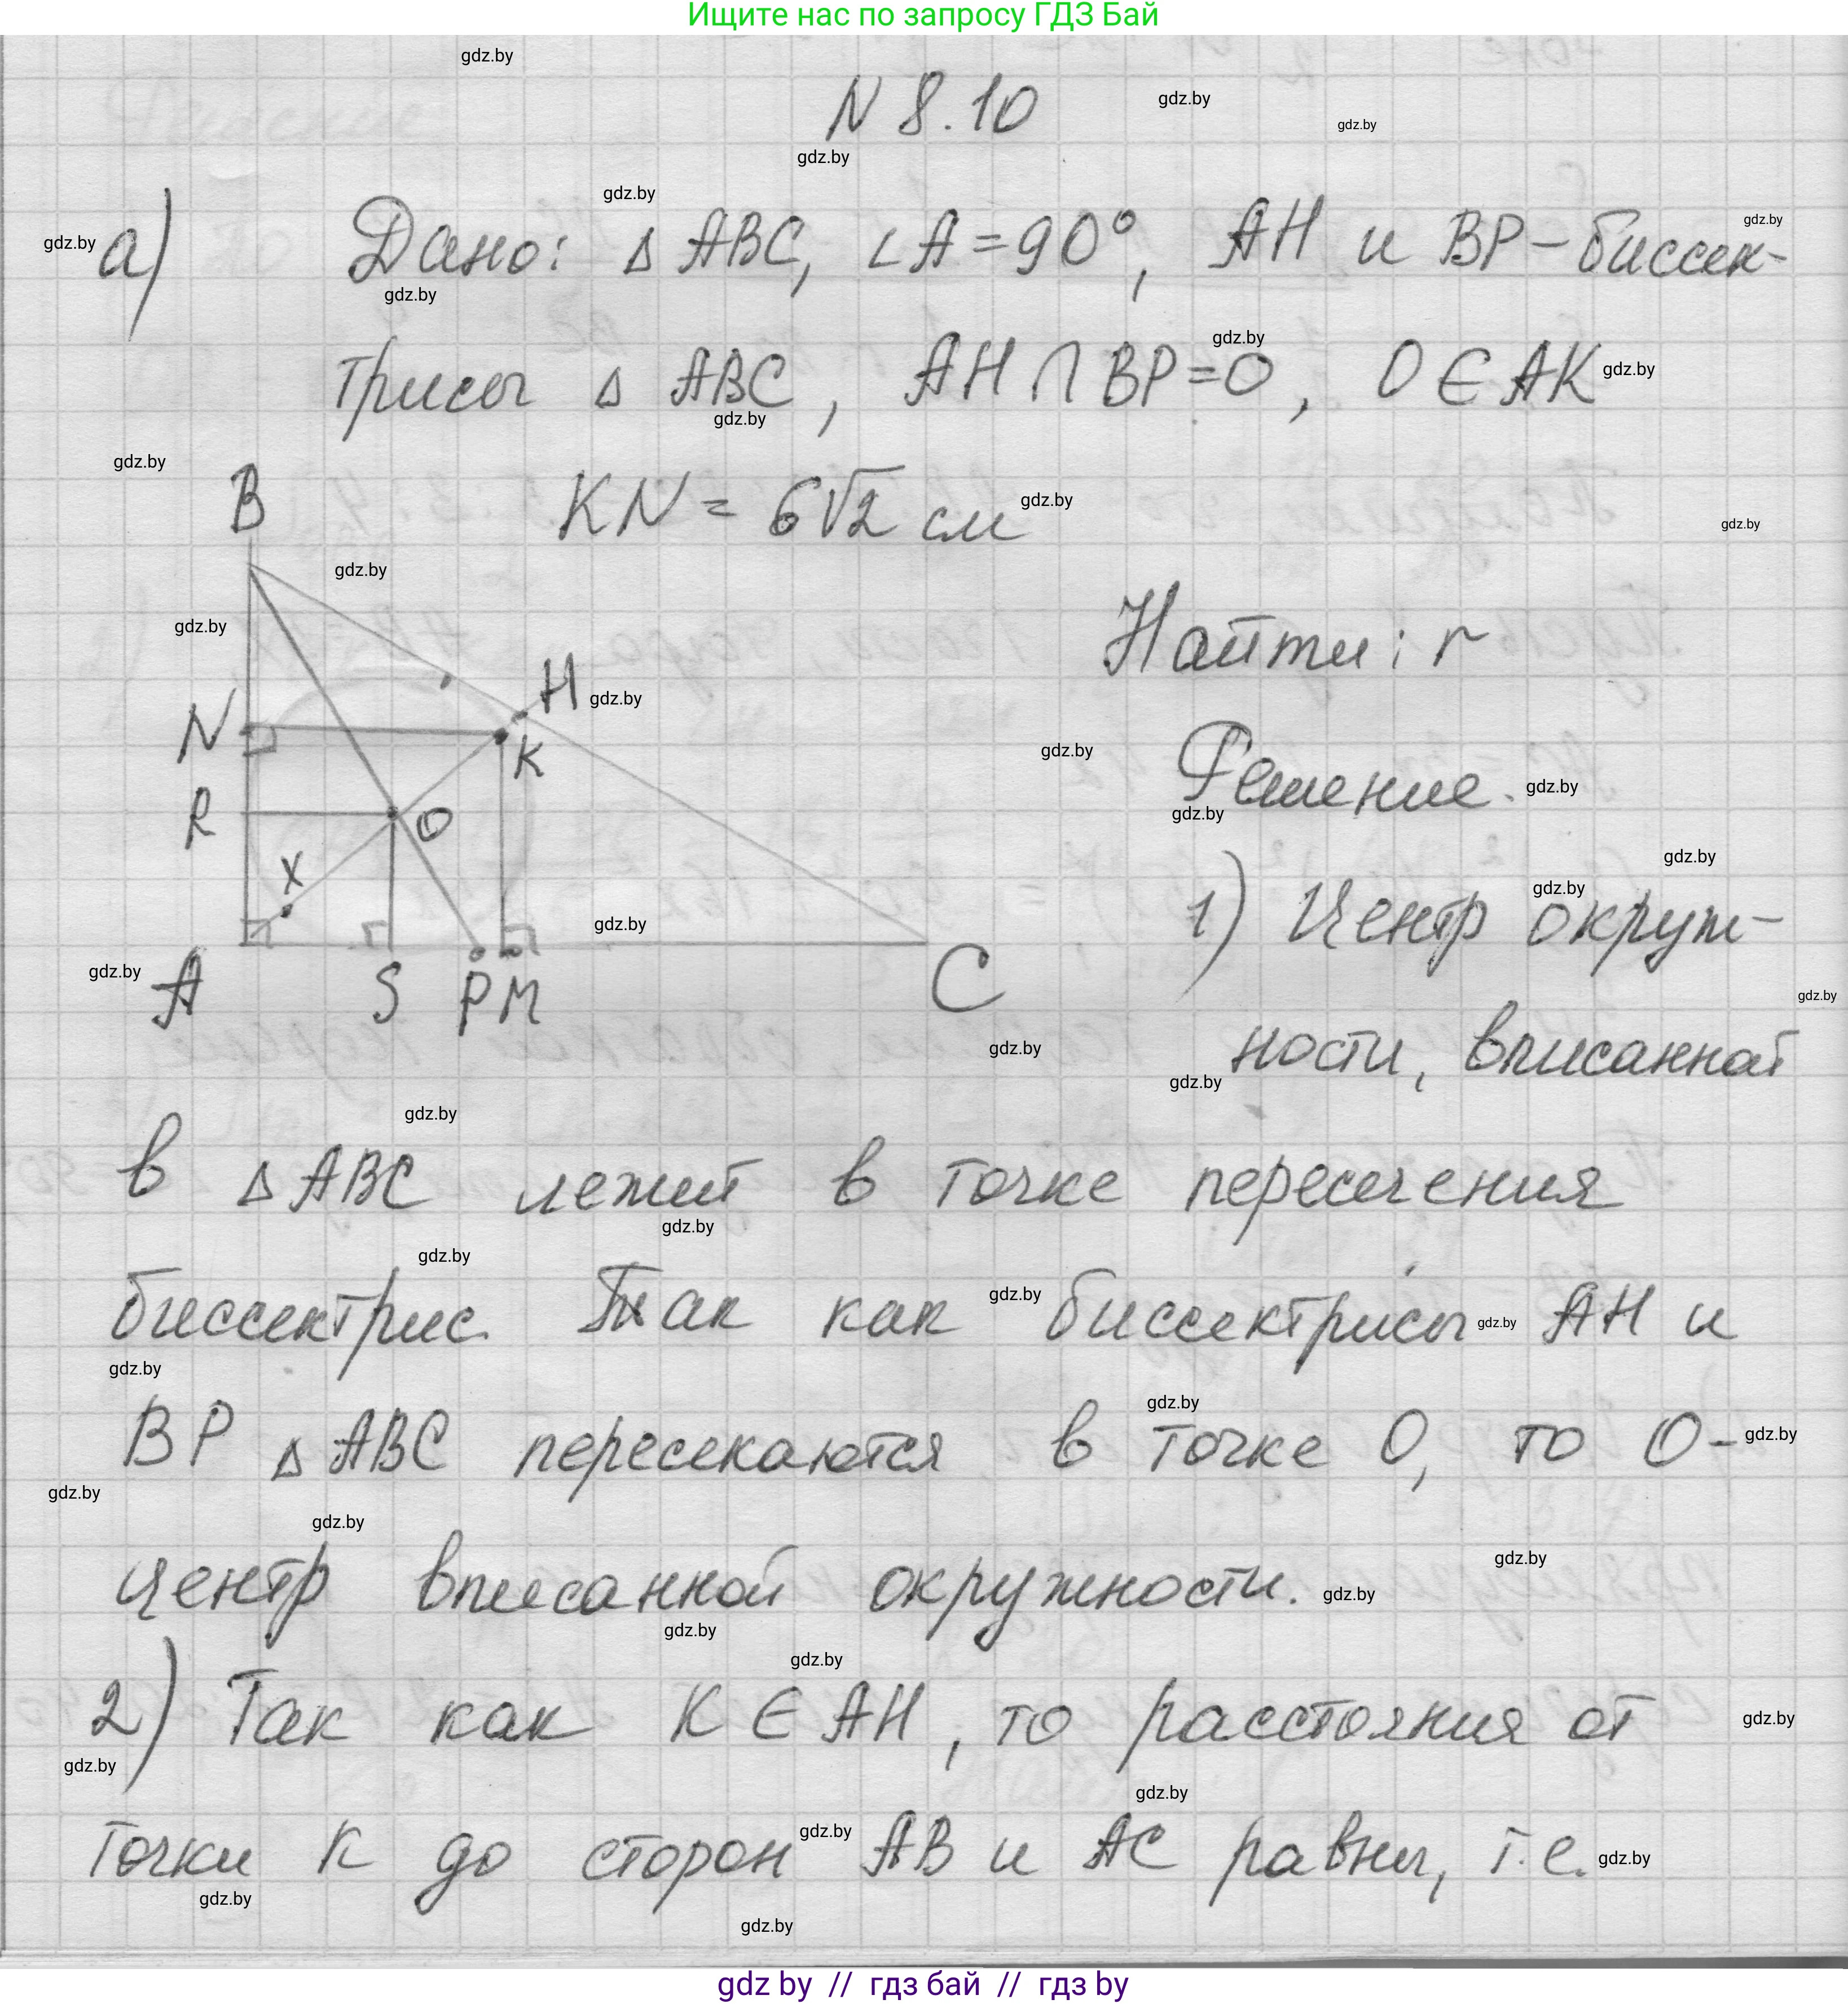 Ищите нас по запросу ГДЗ Бай
N 8.10
а) Дано: △ ABC, ∠A = 90°, AH и BP – биссек-
трисы △ ABC, AH ∩ BP = O, O ∈ AK
KN = 6√2 см
B
H
N
K
R
O
X
A
S
P
M
C
Найти: r
Решение.
1) Центр окруж-
ности, вписанной
в △ ABC лежит в точке пересечения
биссектрис. Так как биссектрисы AH и
BP △ ABC пересекаются в точке O, то O –
центр вписанной окружности.
2) Так как K ∈ AH, то расстояния от
точки K до сторон AB и AC равны, т.е.
gdz by // гдз бай // гдз by